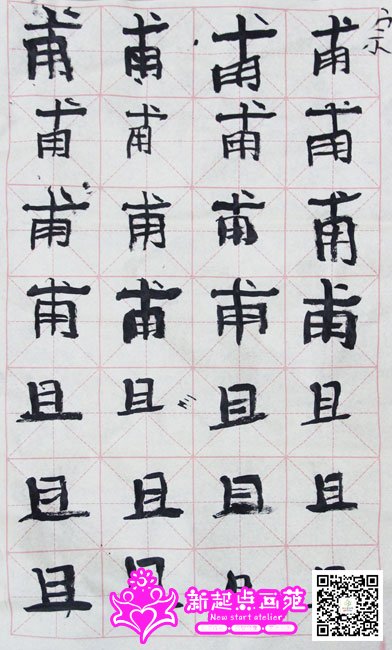 甫 甫 甫 甫
甫 甫 甫 甫
甫 甫 甫 甫
甫 甫 甫 甫
且 且 且 且
且 且 且 且
且 且
新起点画苑
New start atelier